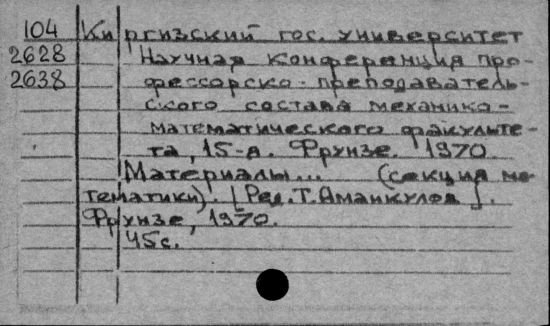 104 Киргизский гос. университет
2628 Научная конференция про-
2638 фессорско-преподаватель-
ского состава механико-
математического факульте-
та, 15-я. Фрунзе. 1970.
Материалы... (секция ма-
тематики). [Ред. Т. Аманкулов].
Фрунзе, 1970.
45с.